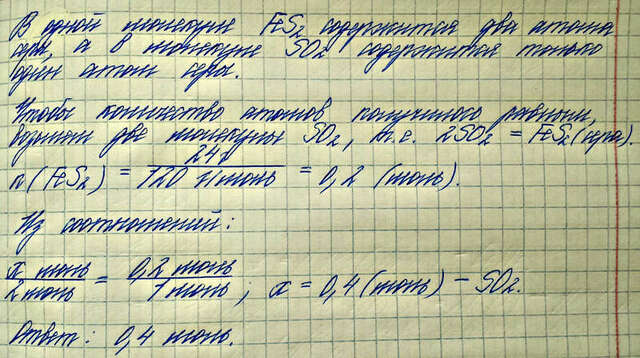 В одной молекуле FeS₂ содержится два атома
серы, а в молекуле SO₂ содержится только
один атом серы.
Чтобы количество атомов получилось равным,
возьмем две молекулы SO₂, т.е. 2SO₂ = FeS₂(сера).
n(FeS₂) = 24г / 120 г/моль = 0,2 (моль).
Из соотношений:
x моль / 2 моль = 0,2 моль / 1 моль ; x = 0,4 (моль) – SO₂.
Ответ: 0,4 моль.